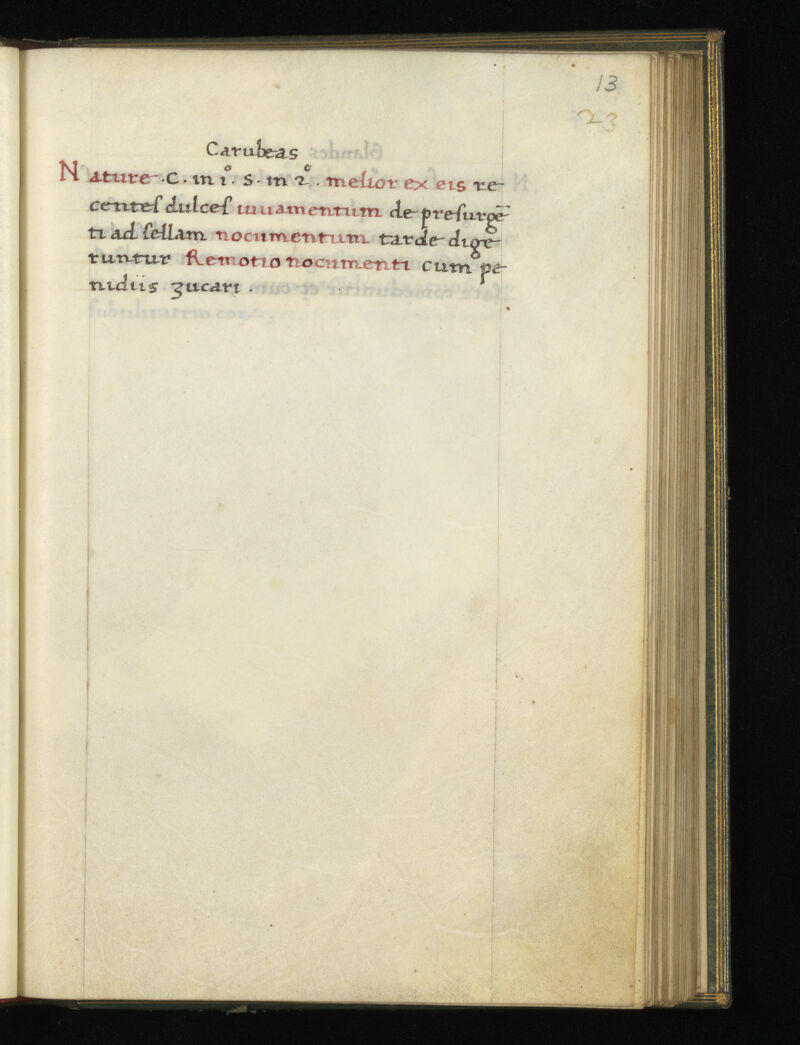 13
23
Carubeas
Nature .c. in i°. s. in 2°. melior ex eis re-
centeſ dulceſ iuuamentum de preſurgē
ti ad ſellam nocumentum tarde dige-
runtur Remotio nocumenti cum pe-
nidiis zucari .